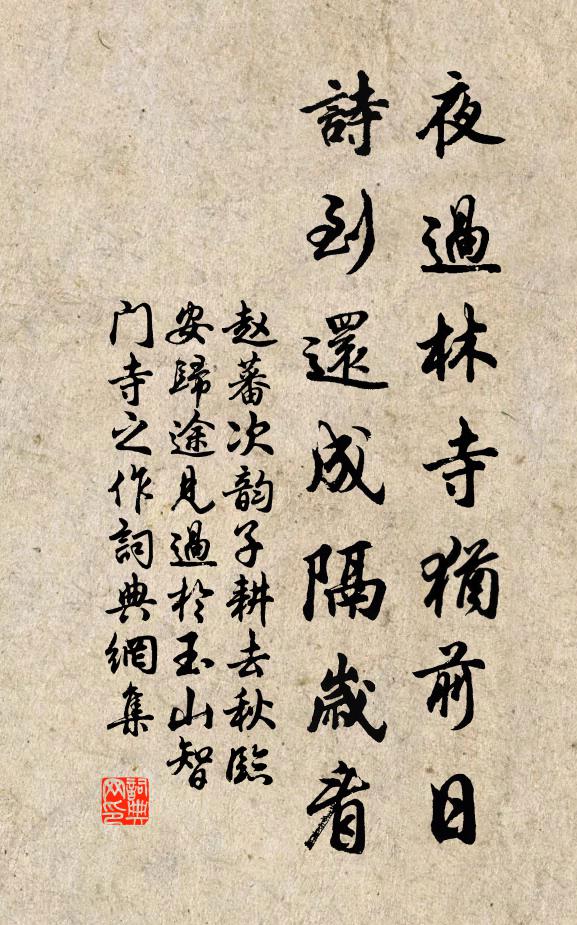 夜過林寺猶前日
詩到還成隔歲看
赵蕃次韵子耕去秋臨
安歸途見過於玉山智
门寺之作詞典網集
詞典
网印